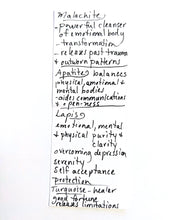 Malachite
- powerful cleanser
of emotional body
- transformation
- release past trauma
& outworn patterns
Apatite) balances
physical, emotional &
mental bodies
- aides communications
& open-ness
Lapis)
emotional, mental
& physical purity &
clarity
overcoming depression
serenity
self acceptance
protection
Turquoise - healer
good fortune,
limitations